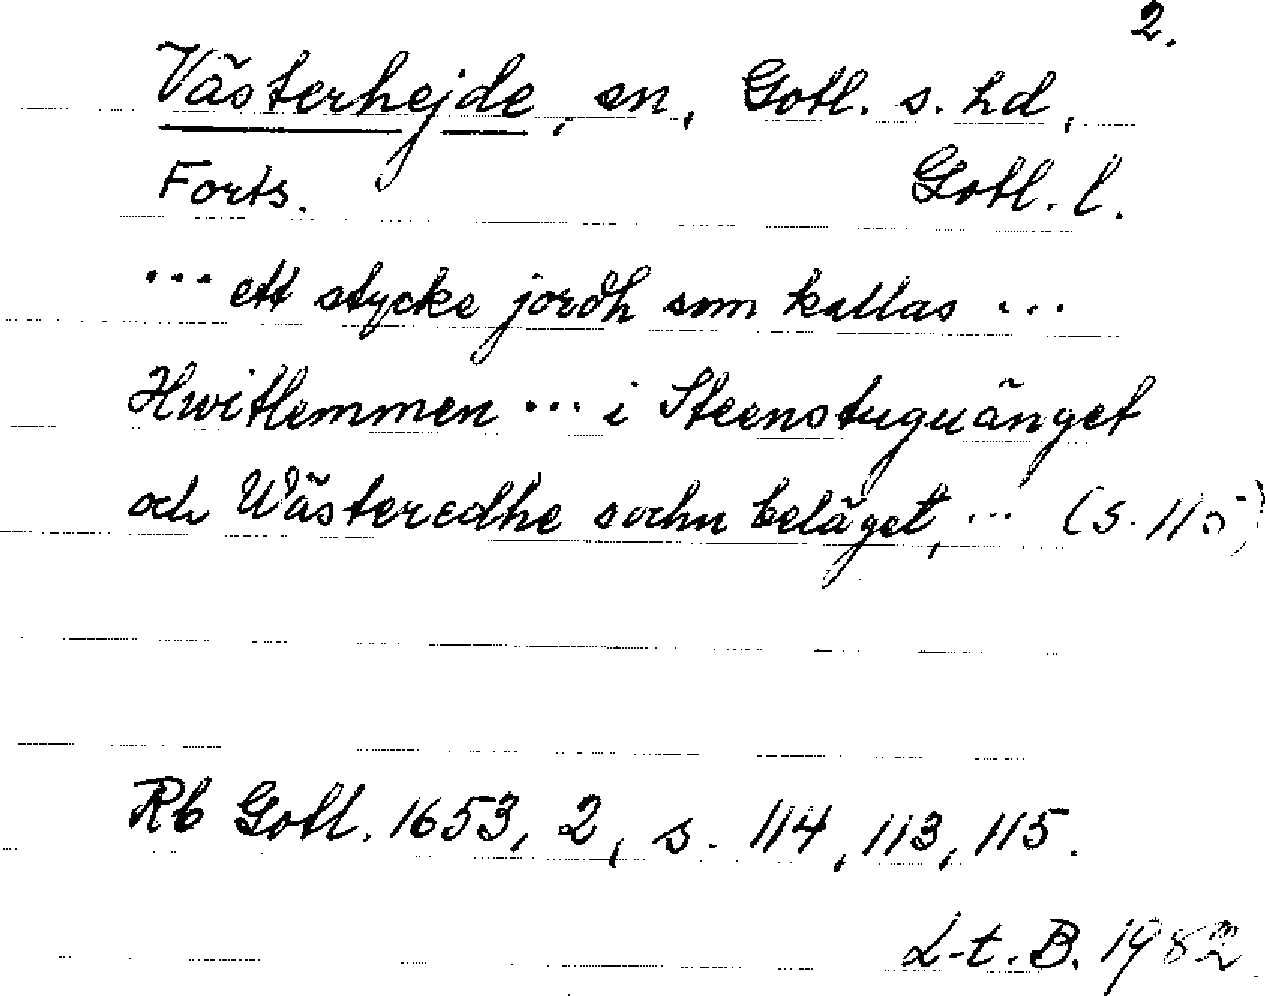 2.
Västerhejde, sn, Gotl. s. hd,
Forts. Gotl. l.
... ett stycke jordh som kallas ...
Hwitlemmen ... i Steenstuguänget
och Wästeredhe sochn beläget, ... (s. 115)
Rb Gotl. 1653, 2, s. 114, 113, 115.
L-t. B. 1982